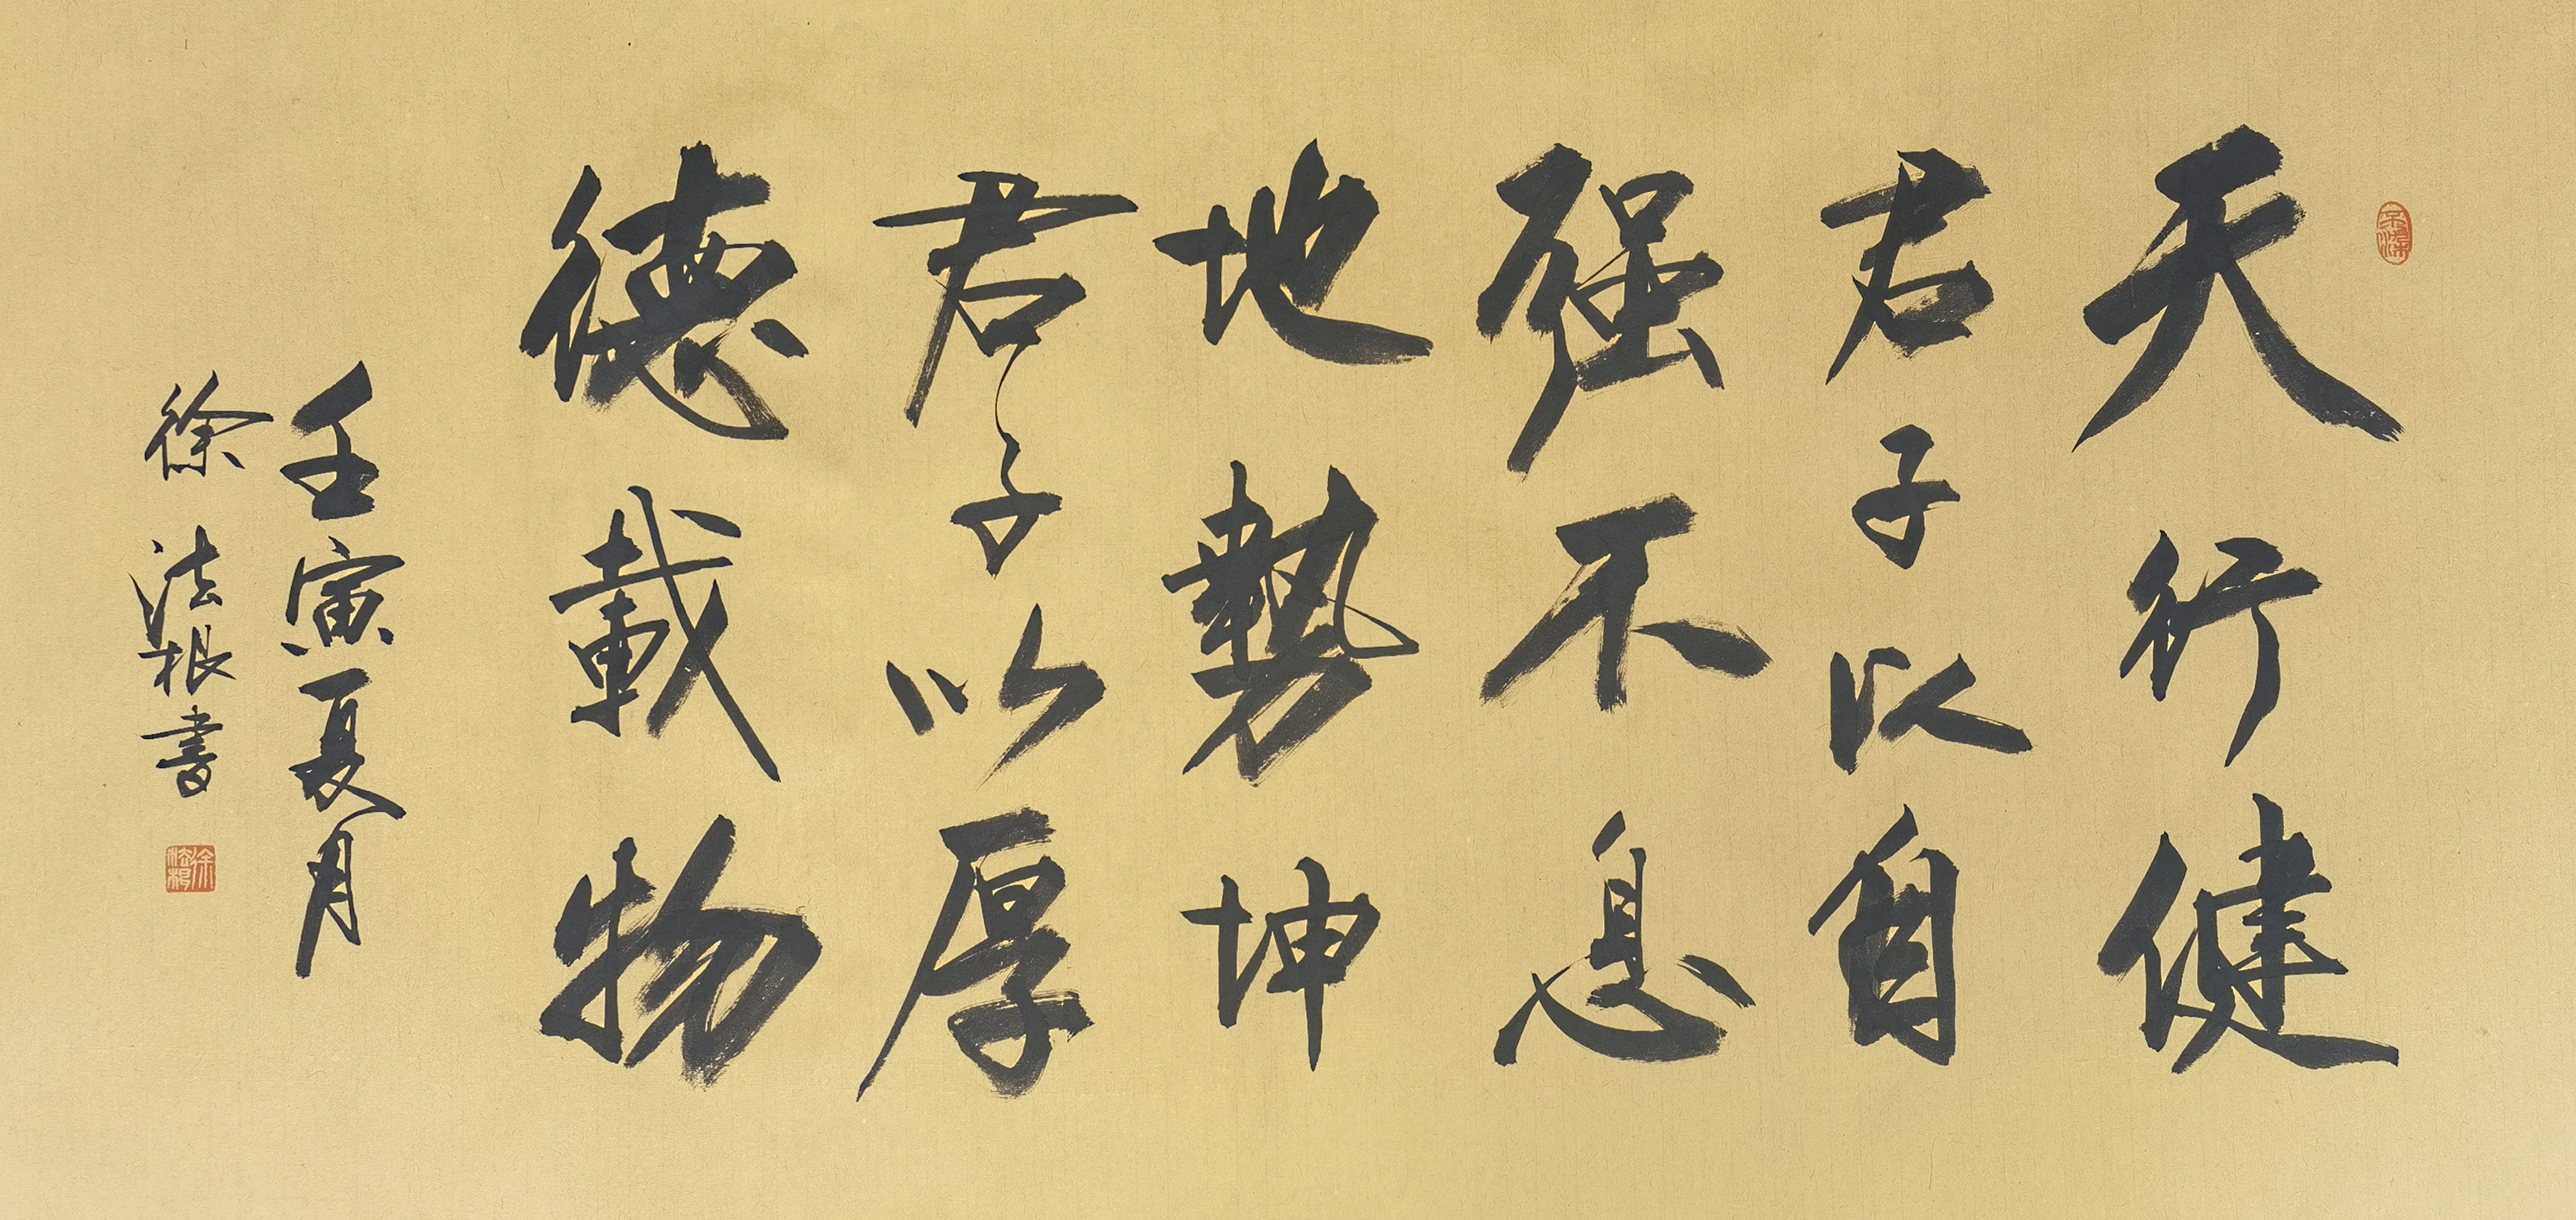 天行健
君子以自
强不息
地勢坤
君子以厚
德載物
壬寅夏月
徐法根書
徐法根